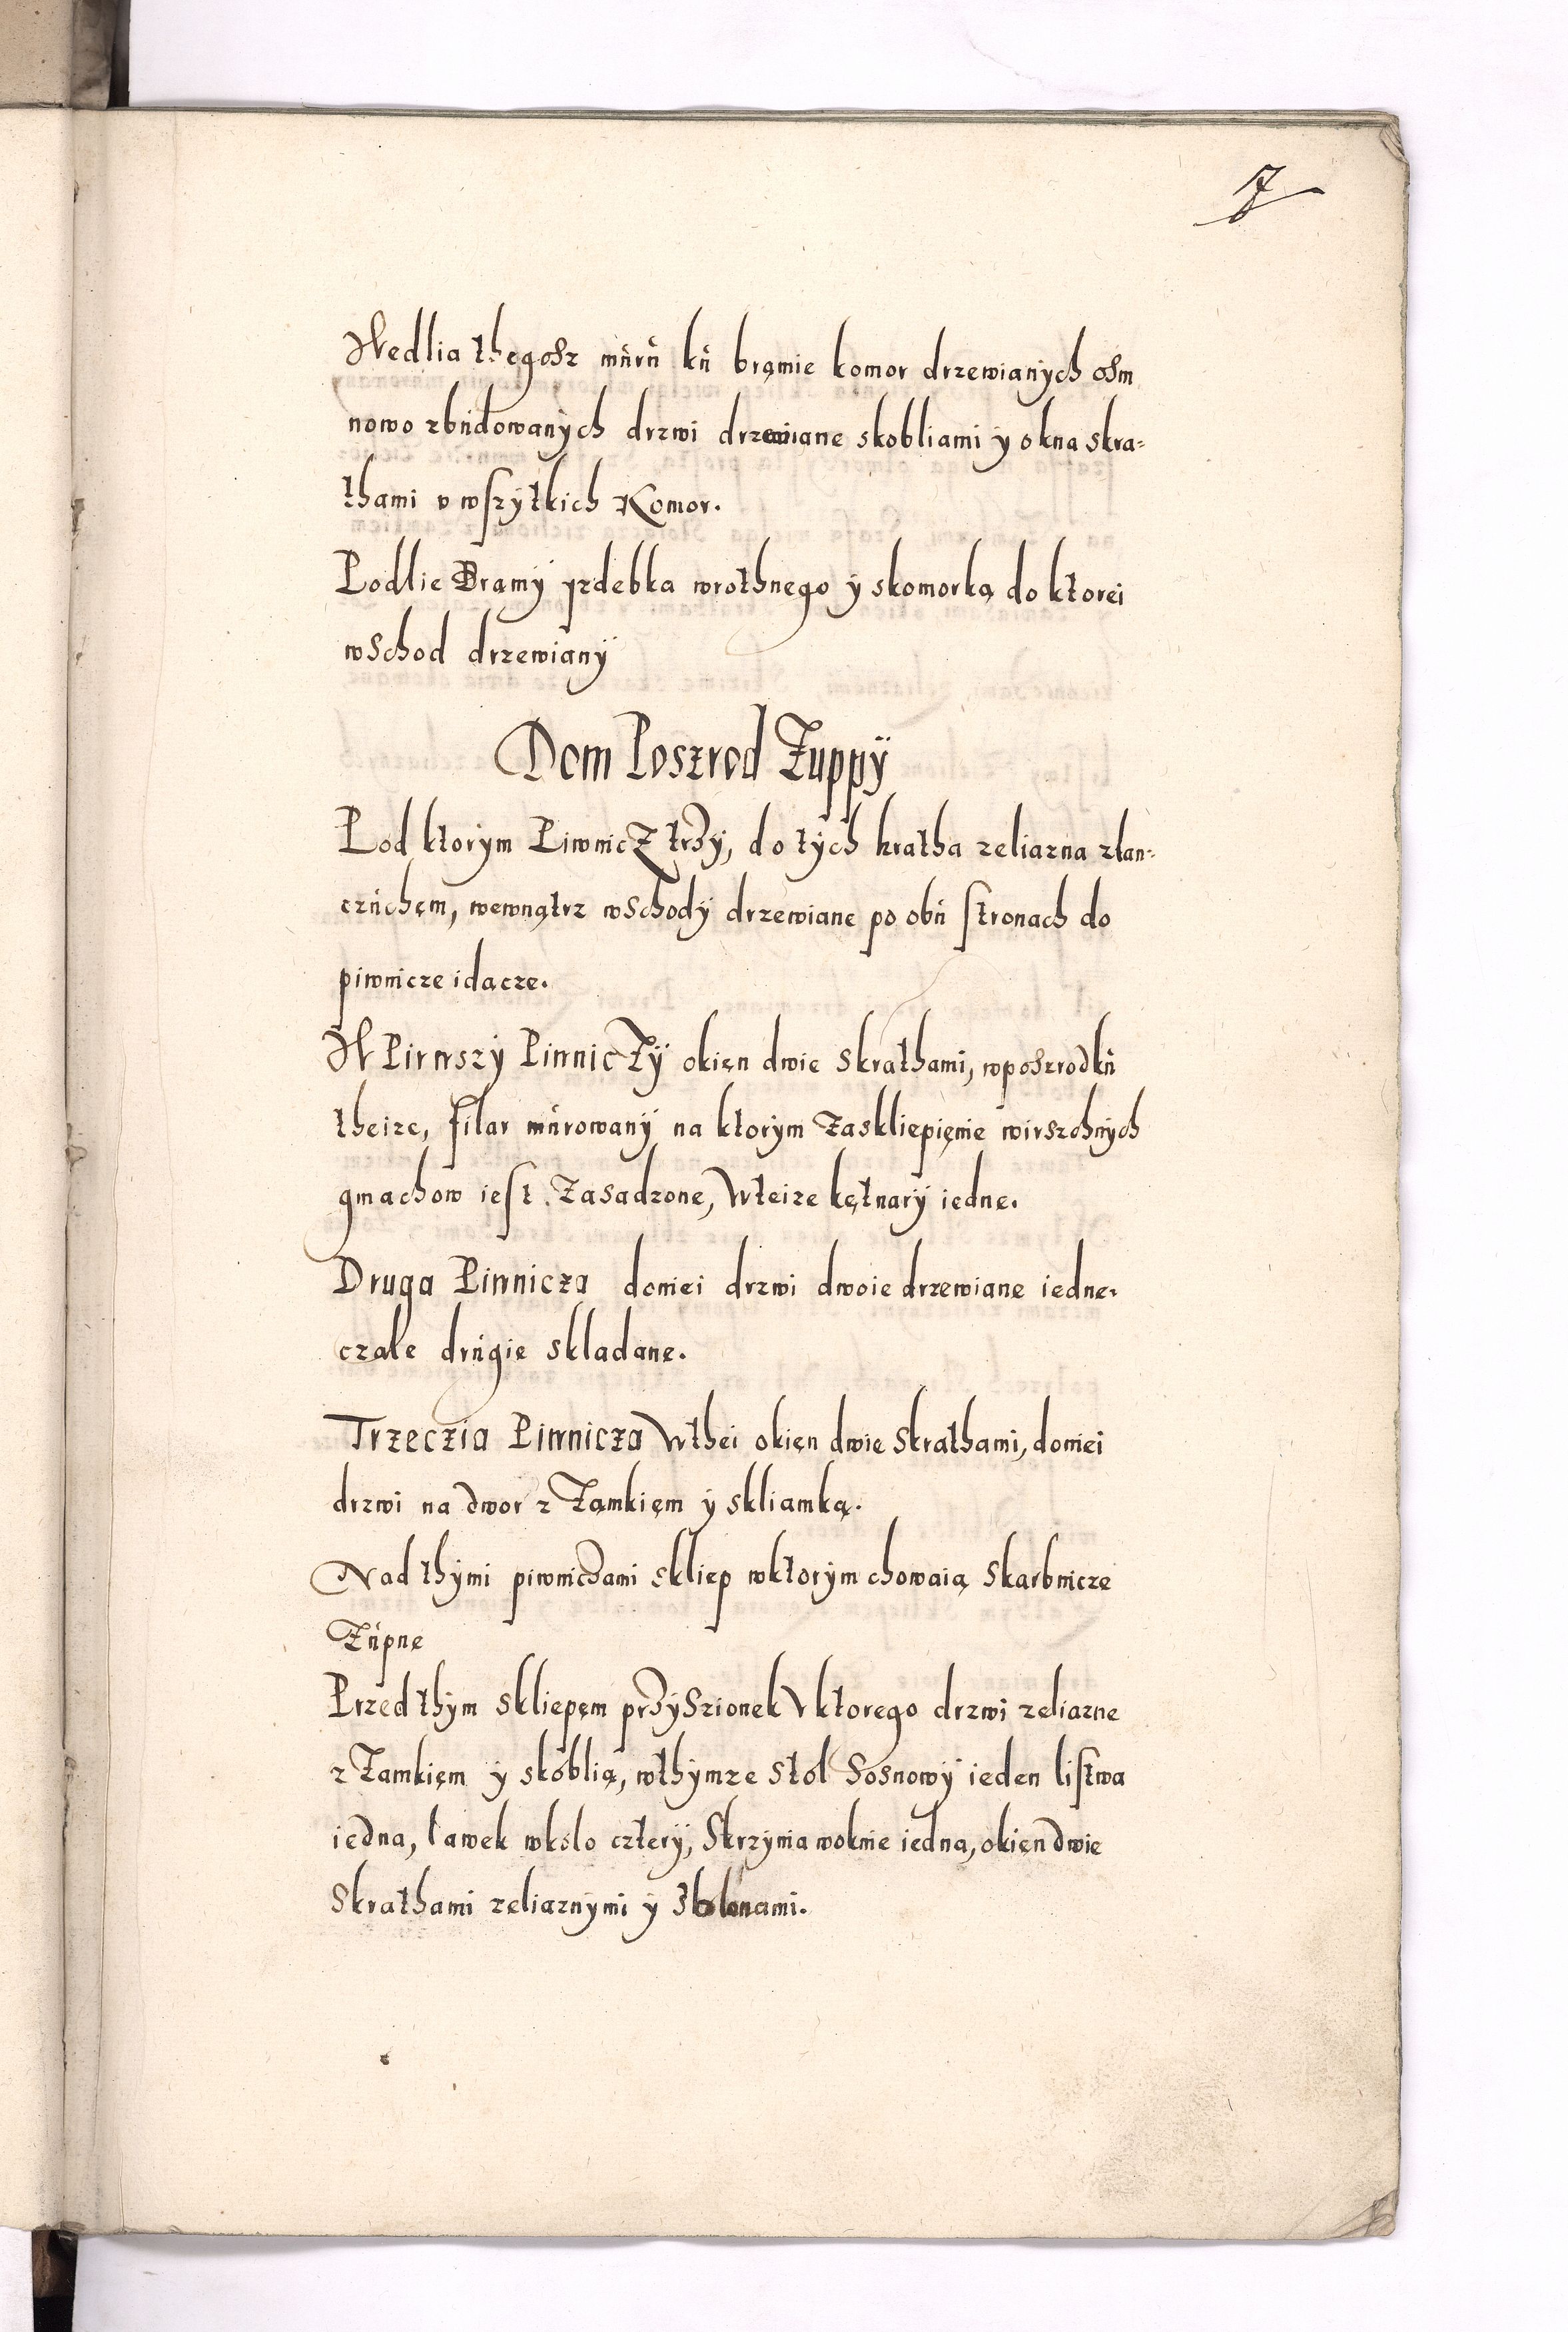 7
Wedlia thegosz muru ku bramie komor drzewianych osm
nowo zbudowanych drzwi drzewiane skobliami y okna skra=
thami v wszytkich Komor.
Podlie Bramy yzdebka wrothnego y skomorką do ktorei
wschod drzewiany
Dom Poszrod Zuppy
Pod ktorym Piwnicz trzy, do tych kratha zeliazna zlan=
czuchęm, wewnątrz wschody drzewiane po obu stronach do
piwnicze idącze.
W Pirwszy Piwniczy okięn dwie skrathami, wposzrodku
theize, filar murowany na ktorym zaskliepięnie wirszchnych
gmachow iest zasadzone, Wteize kętnary iedne.
Druga Piwnicza doniei drzwi dwoie drzewiane iedne.
czałe drugie składane.
Trzeczia Piwnicza Wthei okięn dwie skrathami, doniei
drzwi na dwor z Zamkięm y skliamką.
Nad thymi piwniczami skliep wktorym chowaią skarbnicze
Zupne
Przed thym skliepęm przyszionek V ktorego drzwi zeliazne
z Zamkięm y skoblią, wthymze stol sosnowy ieden listwa
iedna, ławek wkoło cztery, Skrzynia woknie iedna, okięn dwie
skrathami zeliaznymi y zbłonami.